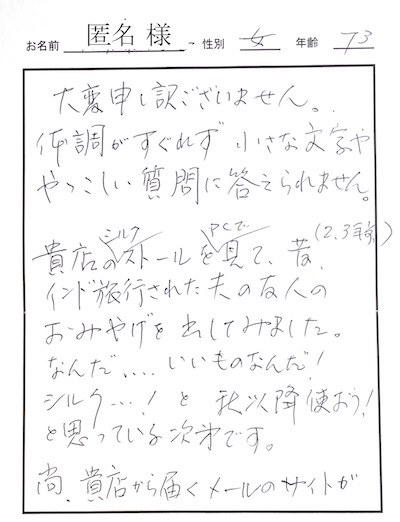 お名前 匿名様 性別 女 年齢 73
大変申し訳ございません。
体調がすぐれず 小さな文字や
やっこしい質問に答えられません。
貴店のシルクストールをPCで見て、昔(2,3年前)
インド旅行された夫の友人の
おみやげを出してみました。
なんだ....いいものなんだ!
シルク…!と 秋以降使おう!
と思っている次才です。
尚、貴店から届くメールのサイトが